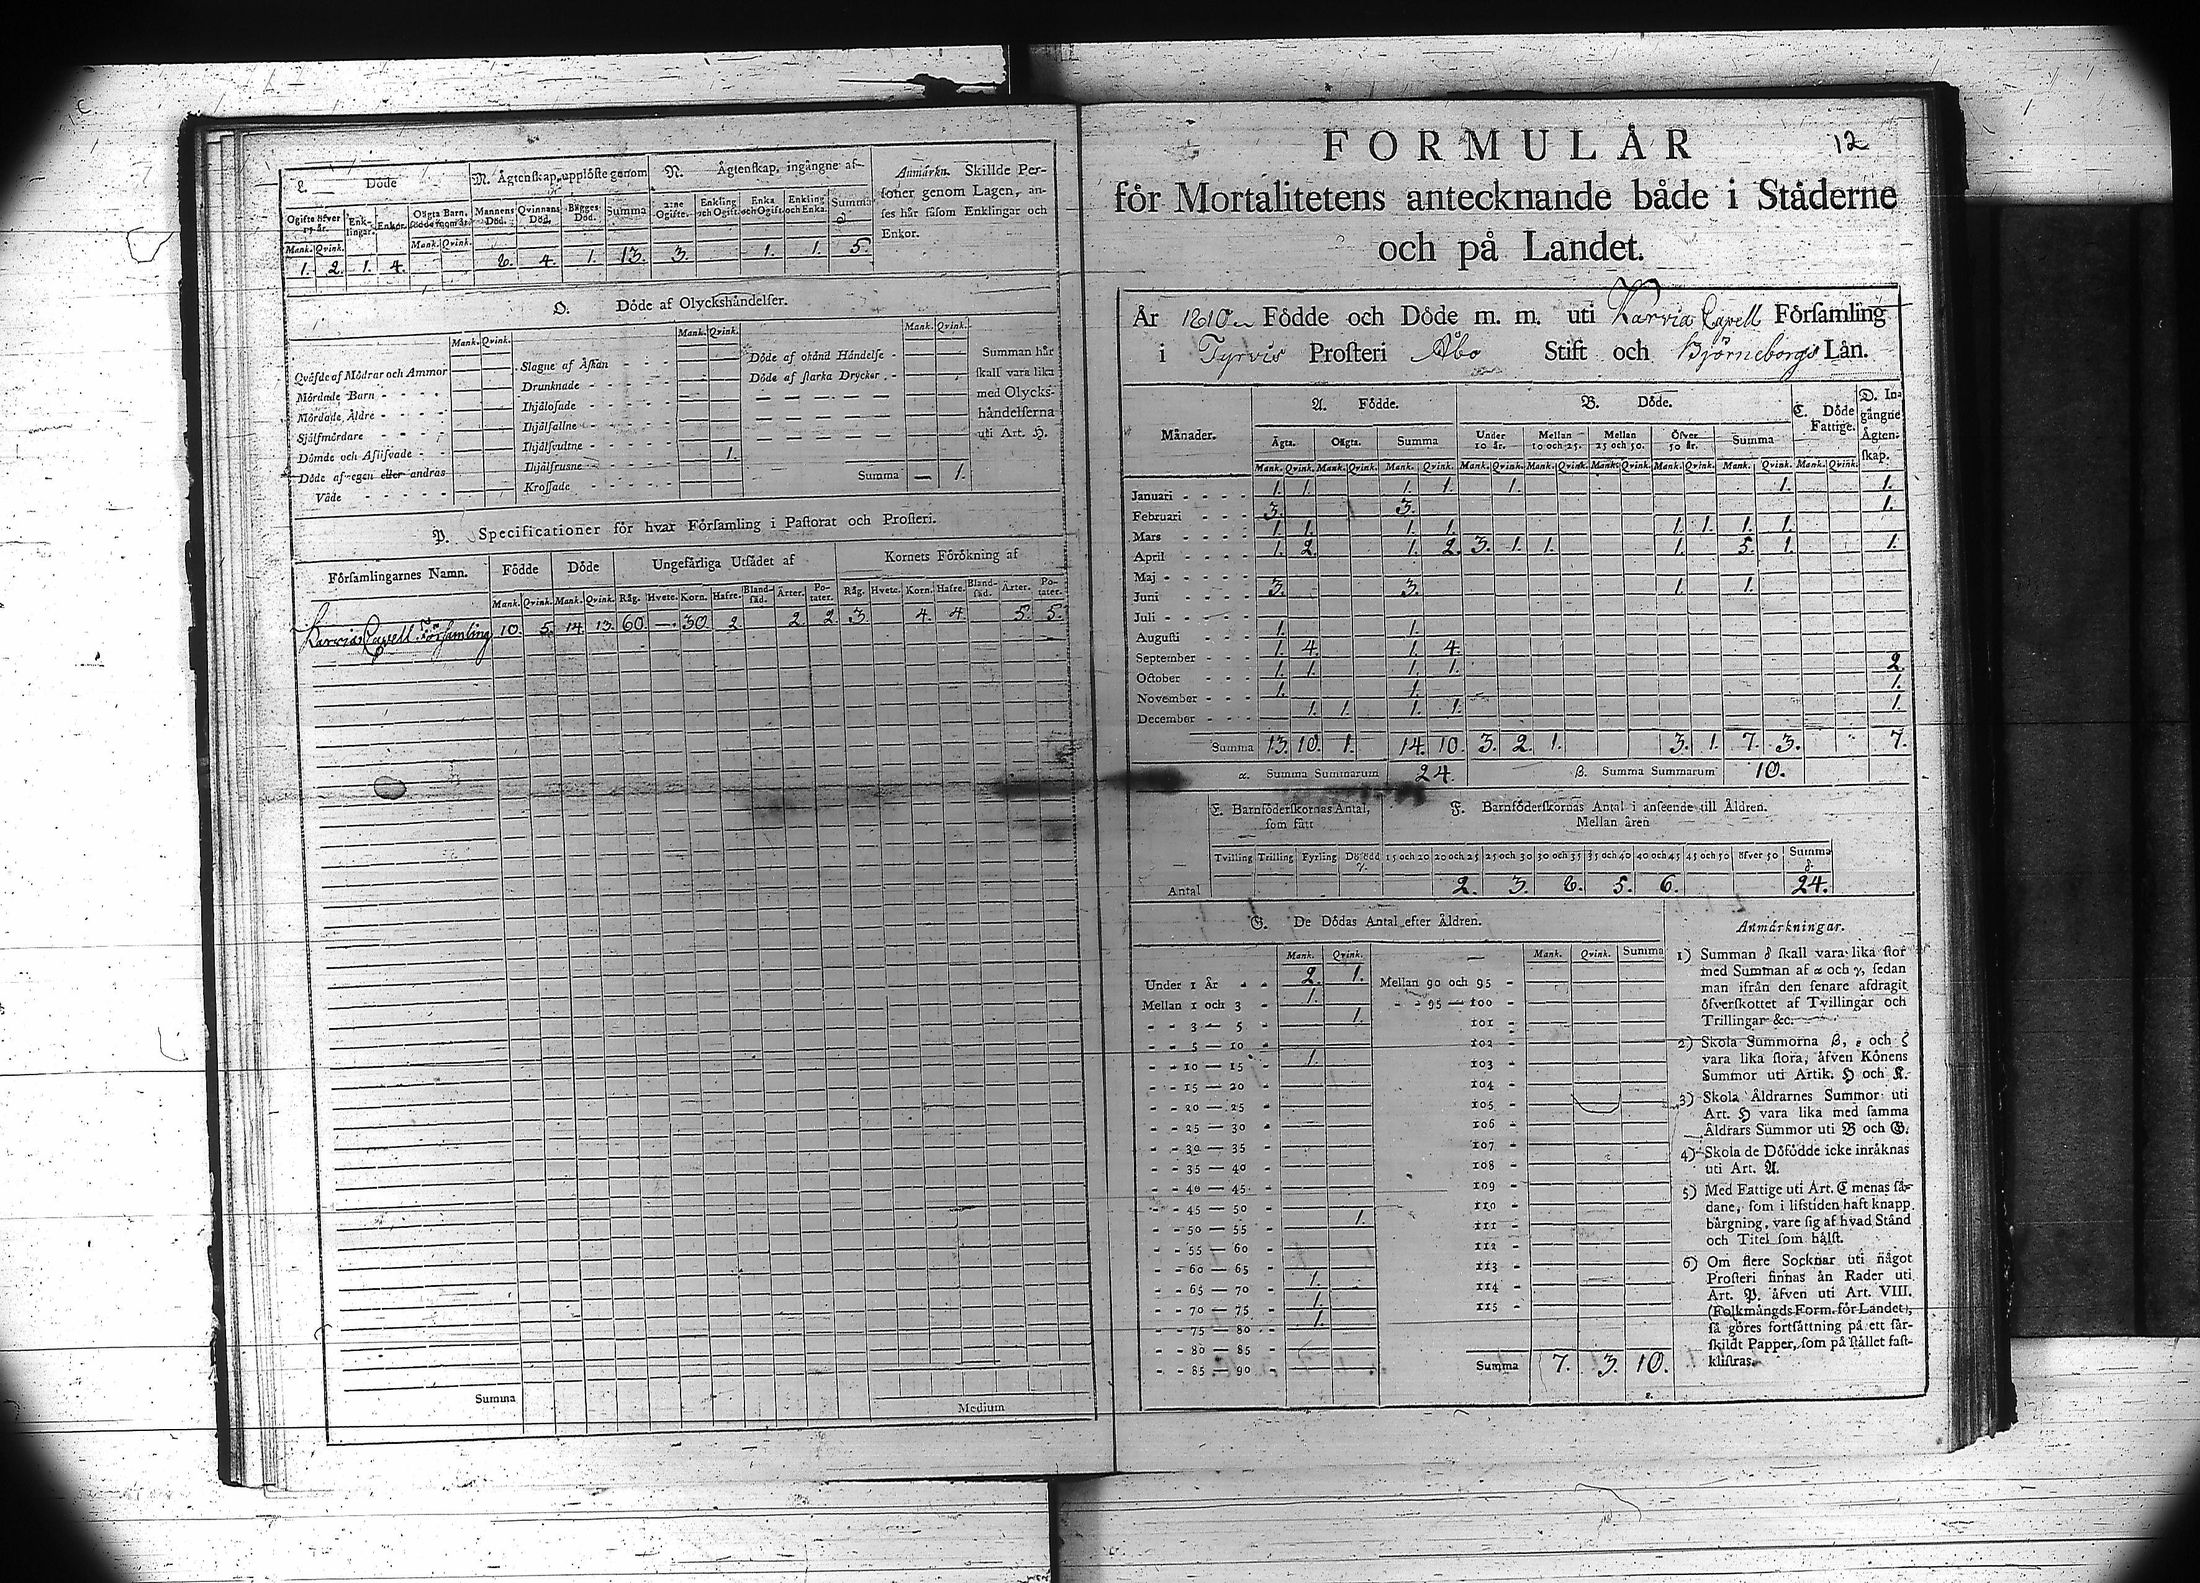 L. Döde
M. Ägtenskap, upplöste genom
N. Ägtenskap, ingångne af
Anmärkn. Skillde Per-
soner genom Lagen, an-
ses här såsom Enklingar och
Enkor.
Ogifte öfver 15 år. Enk-lingar. Enkor. Oägta Barn, födde inom år. Mannens Död. Qvinnans Död. Bägges Död. Summa 2:ne Ogifte. Enkling och Ogift. Enka och Ogift. Enkling och Enka. Summa
Mank. Qvink. Mank. Qvink.
1. 2. 1. 4. 8. 4. 1. 13. 3. 1. 1. 5.
O. Döde af Olyckshändelser.
Mank. Qvink. Mank. Qvink. Mank. Qvink.
Qväfde af Mödrar och Ammor
Mördade Barn
Mördade Äldre
Sjelfmördare
Dömde och Aflifvade
Döde af egen eller andras
Våde
Slagne af Åskan
Drunknade
Ihjälosade
Ihjälfallne
Ihjälsvultne 1.
Ihjälfrusne
Krossade
Döde af okänd Händelse
Döde af starka Drycker
Summa — 1.
Summan här
skall vara lika
med Olycks-
händelserna
uti Art. H.
P. Specificationer för hvar Församling i Pastorat och Prosteri.
Församlingarnes Namn. Födde Döde Ungefärliga Utsädet af Kornets Förökning af
Mank. Qvink. Mank. Qvink. Råg. Hvete. Korn. Hafre. Bland-säd. Ärter. Po-tater. Råg. Hvete. Korn. Hafre. Bland-säd. Ärter. Po-tater.
Karvia Capell Församling 10. 5. 14. 13. 60. — 30. 2 2. 2. 3. 4. 4. 5. 5.
Summa
Medium
12
FORMULÄR
för Mortalitetens antecknande både i Städerne
och på Landet.
År 1810 Födde och Döde m. m. uti Karvia Capell Församling
i Tyrvis Prosteri Åbo Stift och Björneborgs Län.
Månader. A. Födde. B. Döde. C. Döde Fattige. D. In-gångne Ägten-skap.
Ägta. Oägta. Summa Under 10 år. Mellan 10 och 25. Mellan 25 och 50. Öfver 50 år. Summa
Mank. Qvink. Mank. Qvink. Mank. Qvink. Mank. Qvink. Mank. Qvink. Mank. Qvink. Mank. Qvink. Mank. Qvink. Mank. Qvink.
Januari 1. 1. 1. 1. 1. 1. 1.
Februari 3. 3. 1.
Mars 1. 1. 1. 1. 1. 1. 1. 1.
April 1. 2. 1. 2. 3. 1. 1. 1. 5. 1. 1.
Maj
Juni 3. 3. 1. 1.
Juli
Augusti 1. 1.
September 1. 4. 1. 4.
October 1. 1. 1. 1. 2.
November 1. 1. 1.
December 1. 1. 1. 1. 1.
Summa 13. 10. 1. 14. 10. 3. 2. 1. 3. 1. 7. 3. 7.
α. Summa Summarum 24. β. Summa Summarum 10.
E. Barnföderskornas Antal, som fått
F. Barnföderskornas Antal i anseende till Åldren.
Mellan åren
Tvilling Trilling Fyrling Dödödd γ. 15 och 20 20 och 25 25 och 30 30 och 35 35 och 40 40 och 45 45 och 50 öfver 50 Summa δ
Antal 2. 3. 8. 5. 6. 24.
G. De Dödas Antal efter Åldren.
Mank. Qvink. Mank. Qvink. Summa
Under 1 År 2. 1.
Mellan 1 och 3 1.
3 — 5 1.
5 — 10
10 — 15 1.
15 — 20
20 — 25
25 — 30
30 — 35
35 — 40
40 — 45
45 — 50
50 — 55 1.
55 — 60
60 — 65
65 — 70 1.
70 — 75 1.
75 — 80 1.
80 — 85
85 — 90
Mellan 90 och 95
95 — 100
101
102
103
104
105
106
107
108
109
110
111
112
113
114
115
Summa 7. 3. 10.
ε.
Anmärkningar.
1) Summan δ skall vara lika stor
med Summan af α och γ, sedan
man ifrån den senare afdragit
öfverskottet af Tvillingar och
Trillingar &c.
2) Skola Summorna β, ε och ζ
vara lika stora, äfven Könens
Summor uti Artik. H och K.
3) Skola Åldrarnes Summor uti
Art. H vara lika med samma
Åldrars Summor uti B och G.
4) Skola de Döfödde icke inräknas
uti Art. A.
5) Med Fattige uti Art. C menas så-
dane, som i lifstiden haft knapp
bärgning, vare sig af hvad Stånd
och Titel som hälst.
6) Om flere Socknar uti något
Prosteri finnas än Rader uti
Art. P. äfven uti Art. VIII.
(Folkmängds Form. för Landet),
så göres fortsättning på ett sär-
skildt Papper, som på stället fast-
klistras.